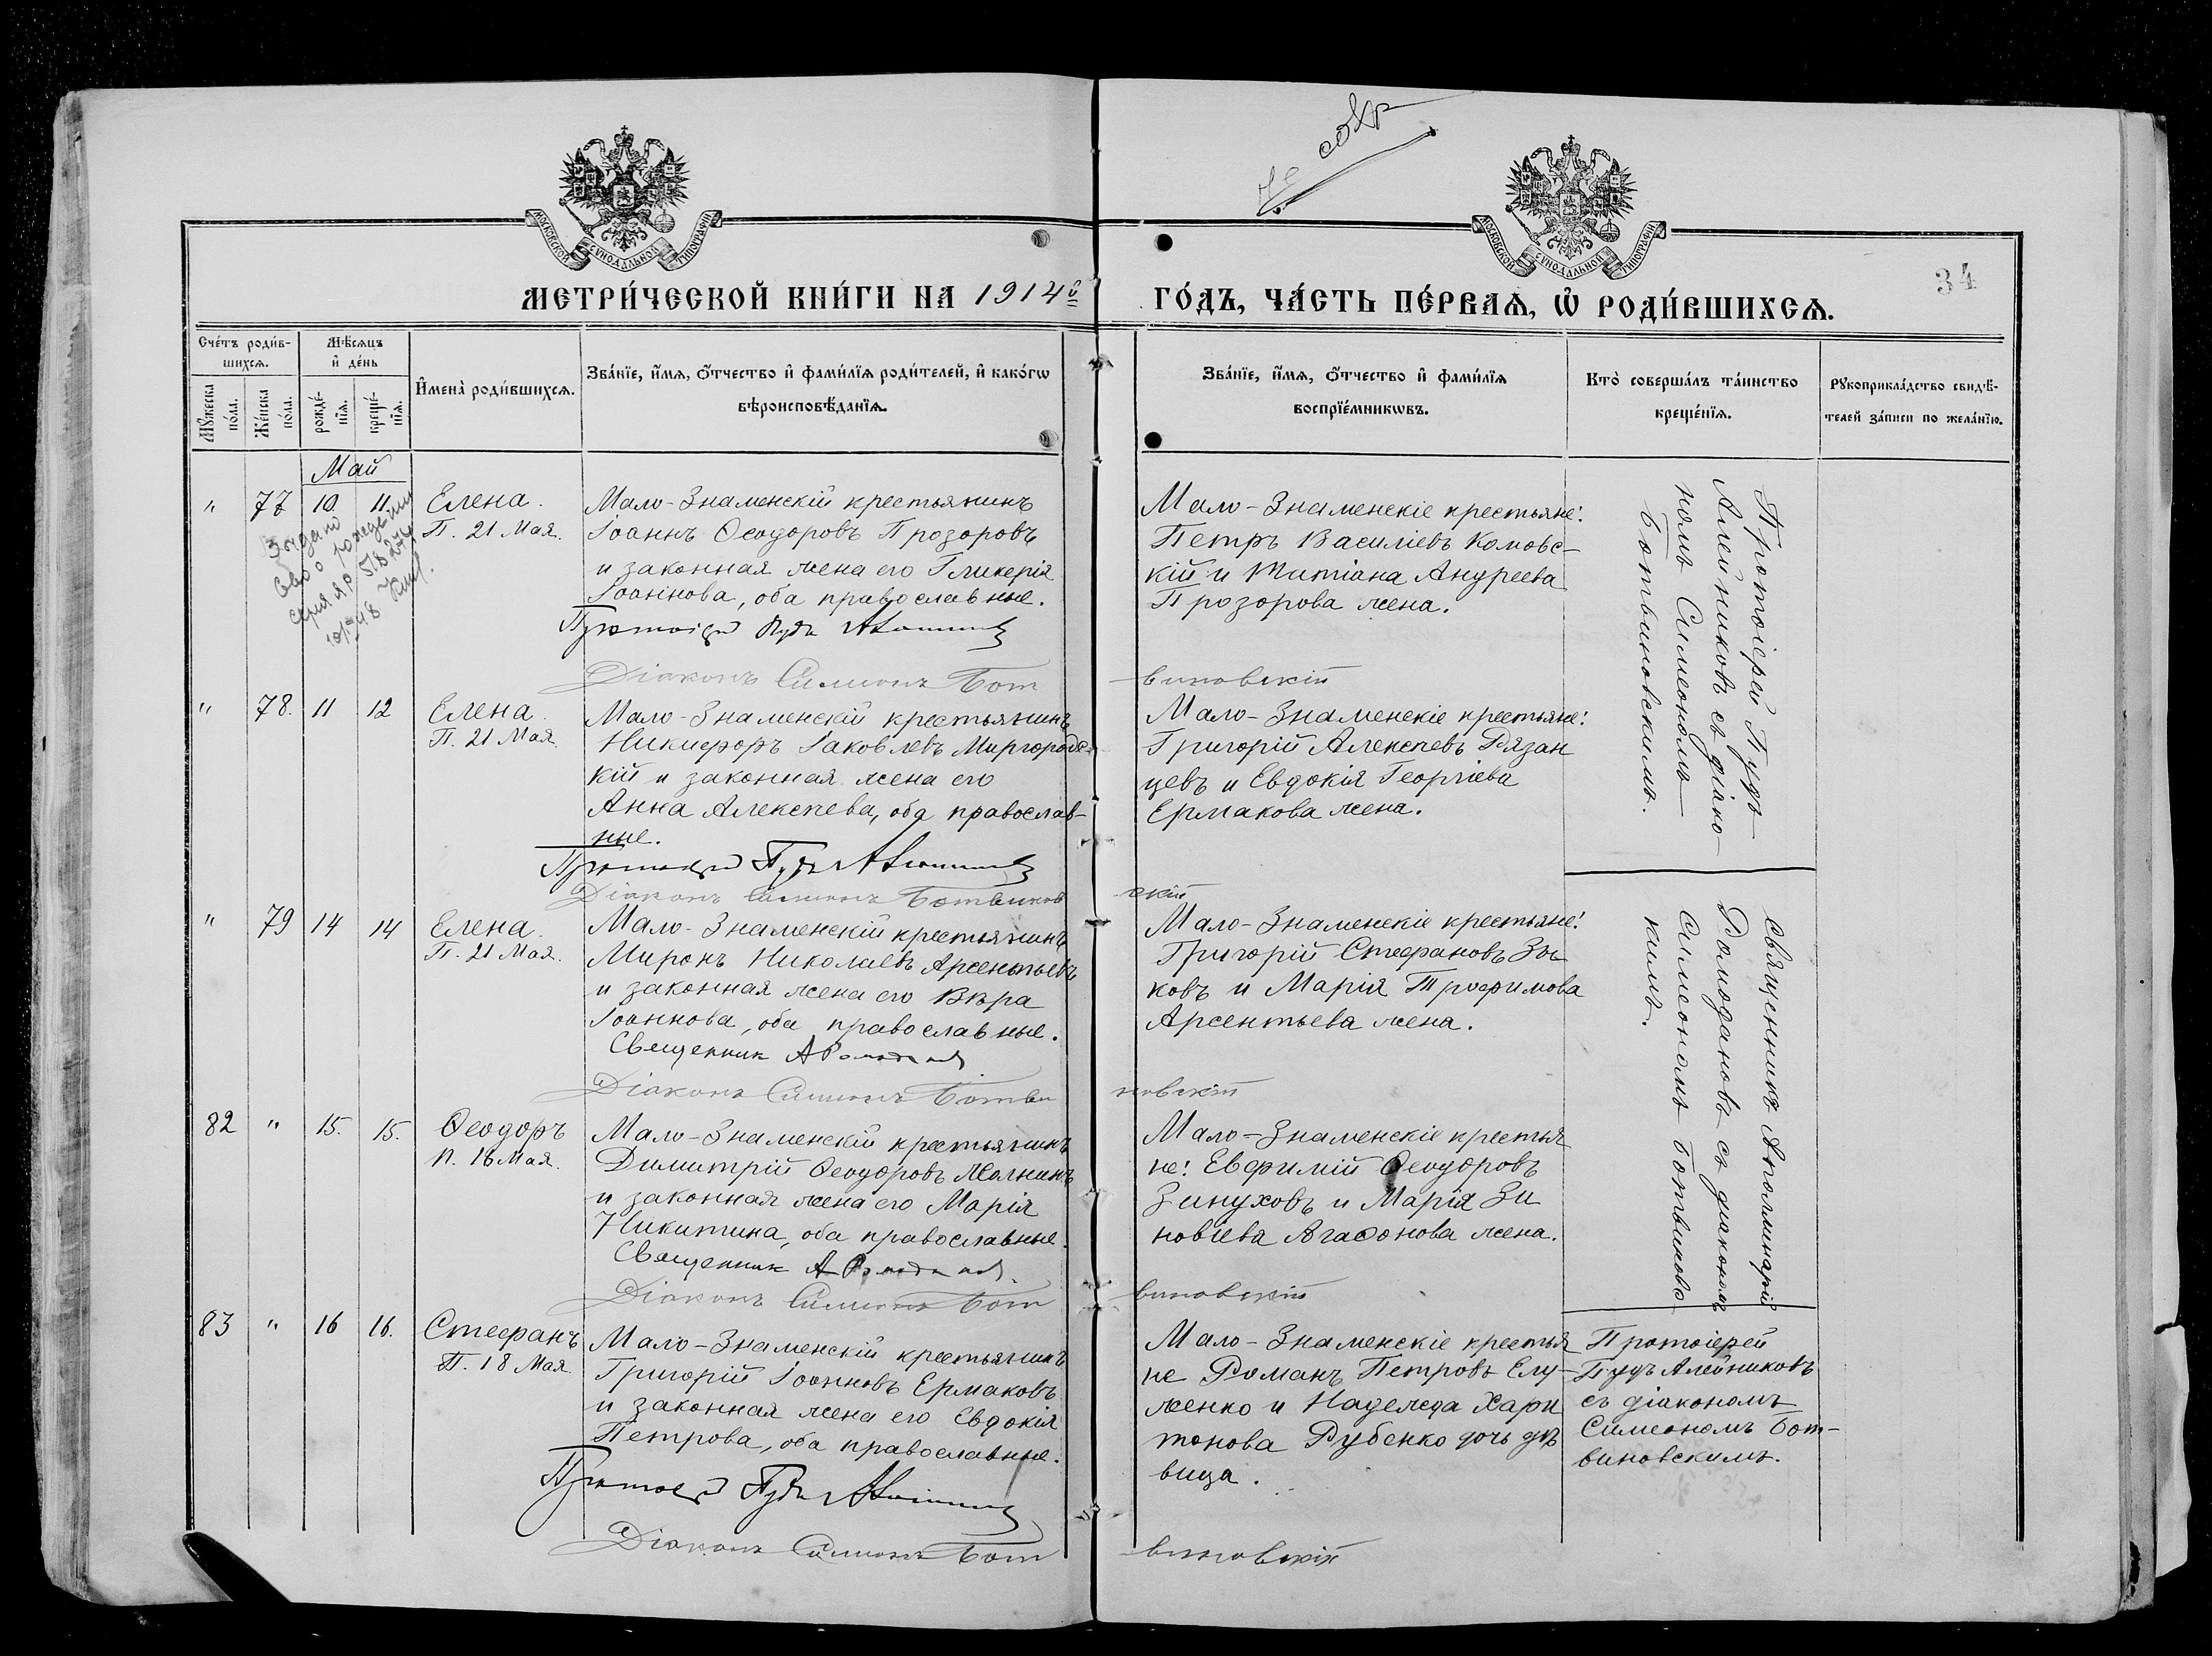 сохр
МОСКОВСКОЙ СѴНОДАЛЬНОЙ ТИПОГРАФІИ
МОСКОВСКОЙ СѴНОДАЛЬНОЙ ТИПОГРАФІИ
34
МЕТРИ́ЧЕСКОЙ КНИ́ГИ НА 1914й ГО́ДЪ, ЧА́СТЬ ПЕ́РВАѦ, Ѡ҆ РОДИ́ВШИХСѦ.
Сче́тъ роди́в-
шихсѧ.
Мѣ́сѧцъ
и҆ де́нь
Мꙋ́жеска
по́ла.
Же́нска
по́ла.
рожде́-
нїѧ.
креще́-
нїѧ.
И҆мена̀ роди́вшихсѧ.
Зва́нїе, и҆́мѧ, ѻ҆́тчество и҆ фами́лїѧ роди́телей, и҆ како́гѡ
вѣроисповѣ́данїѧ.
Зва́нїе, и҆́мѧ, ѻ҆́тчество и҆ фами́лїѧ
воспрїе́мникѡвъ.
Кто̀ соверша́лъ та́инство
креще́нїѧ.
Рꙋкоприкла́дство свидѣ́-
телей за́писи по жела́нїю.
Май
" 77 10 11 Елена.
П. 21 Мая.
Мало-Знаменскій крестьянинъ
Іоаннъ Ѳеодоровъ Прозоровъ
и законная жена его Гликерія
Іоаннова, оба православные.
Протоіерей Пудъ Алейниковъ
Діаконъ Симеонъ Ботвиновскій
Мало-Знаменскіе крестьяне:
Петръ Василіевъ Комовс-
кій и Татіана Андреева
Прозорова жена.
Протоіерей Пудъ
Алейниковъ съ діако-
номъ Симеономъ
Ботвиновскимъ.
" 78. 11 12 Елена.
П. 21 Мая.
Мало-Знаменскій крестьянинъ
Никифоръ Іаковлевъ Миргородс-
кій и законная жена его
Анна Алексѣева, оба православ-
ные.
Протоіерей Пудъ Алейниковъ
Діаконъ Симеонъ Ботвиновскій
Мало-Знаменскіе крестьяне:
Григорій Алексѣевъ Рязан
цевъ и Евдокія Георгіева
Ермакова жена.
" 79 14 14 Елена.
П. 21 Мая.
Мало-Знаменскій крестьянинъ
Миронъ Николаевъ Арсентьевъ
и законная жена его Вѣра
Іоаннова, оба православные.
Священник А Ромоданов
Діаконъ Симеонъ Ботвиновскій
Мало-Знаменскіе крестьяне:
Григорій Стефановъ Зы
ковъ и Марія Трофимова
Арсентьева жена.
Священникъ Аполлинарій
Ромодановъ съ діакономъ
Симеономъ Ботвиновс-
кимъ.
82 " 15. 15. Ѳеодоръ
П. 18 Мая.
Мало-Знаменскій крестьянинъ
Димитрій Ѳеодоровъ
и законная жена его Марія
Никитина, оба православные.
Священник А Ромоданов.
Діаконъ Симеонъ Ботвиновскій
Мало-Знаменскіе крестья
не: Евфимій Ѳеодоровъ
Зинуховъ и Марія Зи
новіева Агафонова жена.
83 " 16 16. Стефанъ
П. 18 Мая
Мало-Знаменскій крестьянинъ
Григорій Іоанновъ Ермаковъ
и законная жена его Евдокія
Петрова, оба православные.
Протоіерей Пудъ Алейниковъ
Діаконъ Симеонъ Ботвиновскій
Мало-Знаменскіе крестья
не Романъ Петровъ Елу-
женко и Надежда Хари
тонова Рубенко дочь дѣ
вица.
Протоіерей
Пудъ Алейниковъ
съ діакономъ
Симеономъ Бот-
виновскимъ.